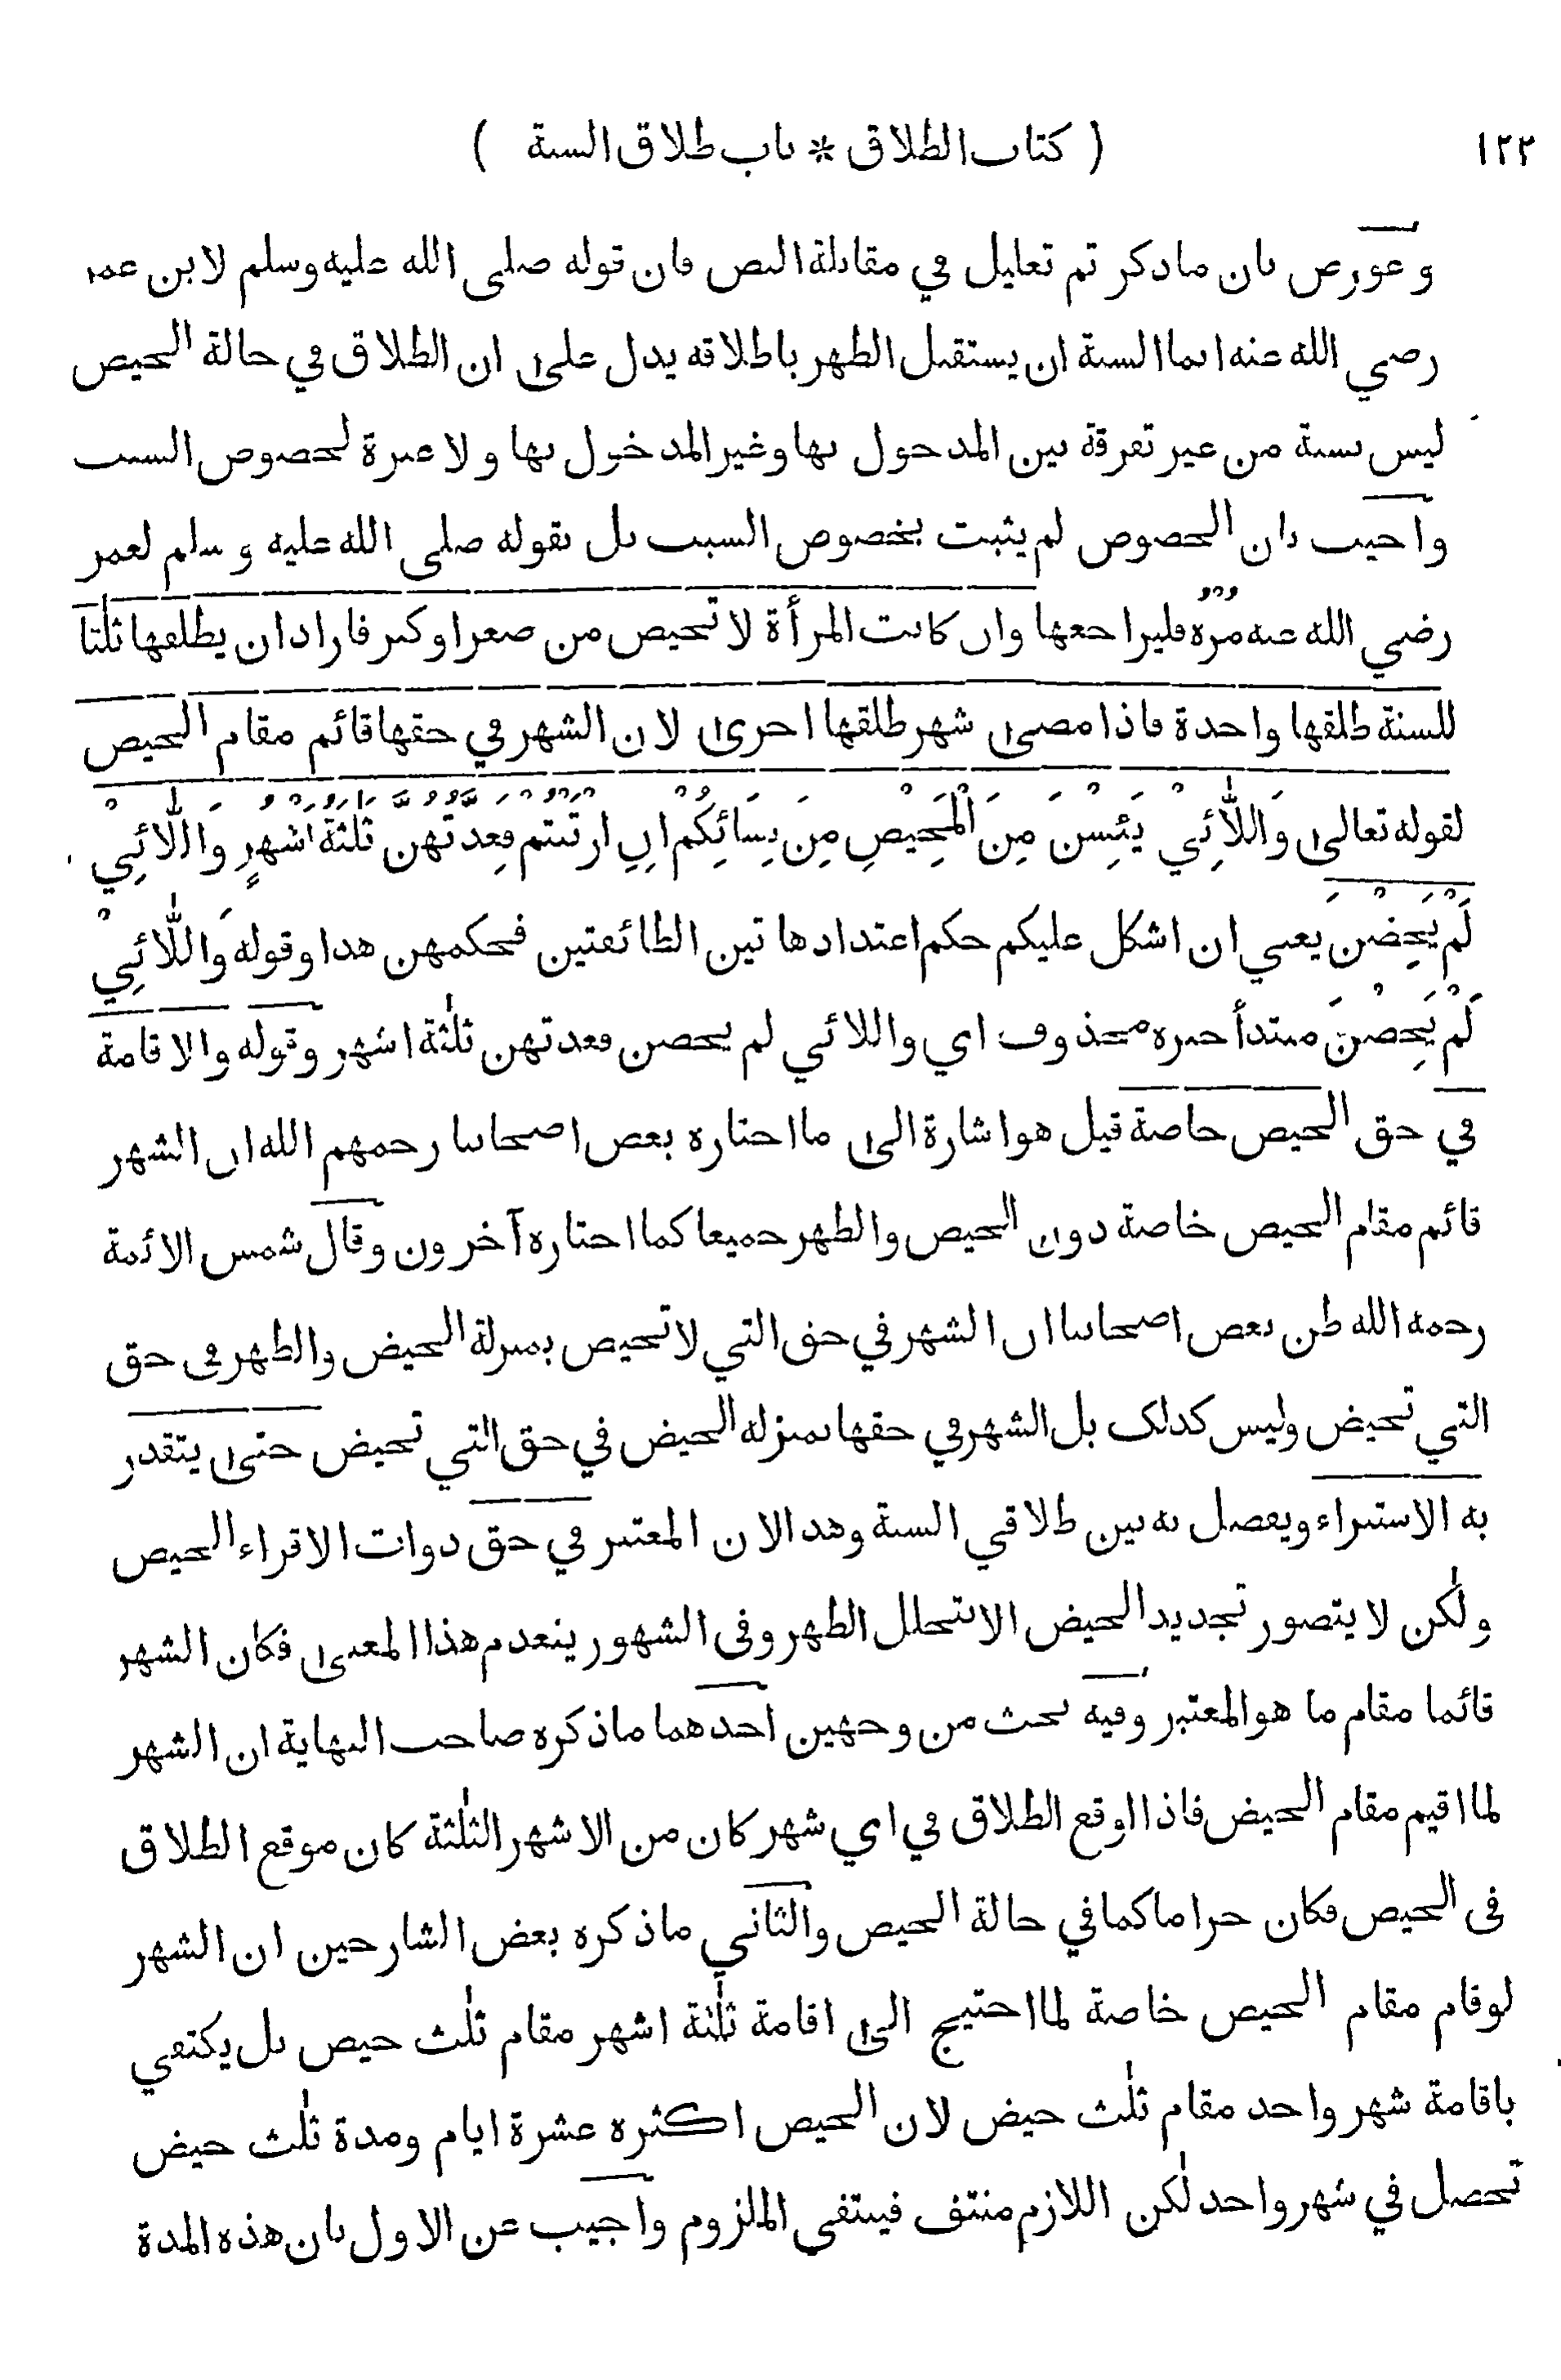 ١٢٢ ( كتاب الطلاق * باب طلاق السنة )
وعورض بان ما ذكر تم تعليل في مقابلة النص فان قوله صلى الله عليه وسلم لابن عمر
رضي الله عنه انما السنة ان يستقبل الطهر باطلاقه يدل على ان الطلاق في حالة الحيض
ليس بسنة من غير تفرقة بين المدخول بها وغير المدخول بها ولا عبرة لخصوص السبب
واجيب بان الخصوص لم يثبت بخصوص السبب بل بقوله صلى الله عليه وسلم لعمر
رضي الله عنه مره فليراجعها وان كانت المرأة لا تحيض من صغر او كبر فاراد ان يطلقها ثلٰثا
للسنة طلقها واحدة فاذا مضى شهر طلقها اخرى لان الشهر في حقها قائم مقام الحيض
لقوله تعالى وَاللَّائِيْ يَئِسْنَ مِنَ الْمَحِيْضِ مِنَ نِسَائِكُمْ اِنِ ارْتَبْتُمْ فَعِدَّتُهُنَّ ثَلٰثَةُ اَشْهُرٍ وَاللَّائِيْ
لَمْ يَحِضْنَ يعني ان اشكل عليكم حكم اعتداد هاتين الطائفتين فحكمهن هذا وقوله وَاللَّائِيْ
لَمْ يَحِضْنَ مبتدأ خبره محذوف اي واللائي لم يحضن فعدتهن ثلٰثة اشهر وقوله والاقامة
في حق الحيض خاصة قيل هو اشارة الى ما اختاره بعض اصحابنا رحمهم الله ان الشهر
قائم مقام الحيض خاصة دون الحيض والطهر جميعا كما اختاره آخرون وقال شمس الائمة
رحمه الله ظن بعض اصحابنا ان الشهر في حق التي لا تحيض بمنزلة الحيض والطهر في حق
التي تحيض وليس كذلك بل الشهر في حقها بمنزله الحيض في حق التي تحيض حتى يتقدر
به الاستبراء ويفصل به بين طلاقي السنة وهذا لان المعتبر في حق ذوات الاقراء الحيض
ولٰكن لا يتصور تجديد الحيض الا بتخلل الطهر وفى الشهور ينعدم هذا المعنى فكان الشهر
قائما مقام ما هو المعتبر وفيه بحث من وجهين احدهما ما ذكره صاحب النهاية ان الشهر
لما اقيم مقام الحيض فاذا اوقع الطلاق في اي شهر كان من الاشهر الثلٰثة كان موقع الطلاق
فى الحيض فكان حراما كما في حالة الحيض والثاني ما ذكره بعض الشارحين ان الشهر
لو قام مقام الحيض خاصة لما احتيج الى اقامة ثلٰثة اشهر مقام ثلٰث حيض بل يكتفي
باقامة شهر واحد مقام ثلٰث حيض لان الحيض اكثره عشرة ايام ومدة ثلٰث حيض
تحصل في شهر واحد لٰكن اللازم منتف فينتفي الملزوم واجيب عن الاول بان هذه المدة